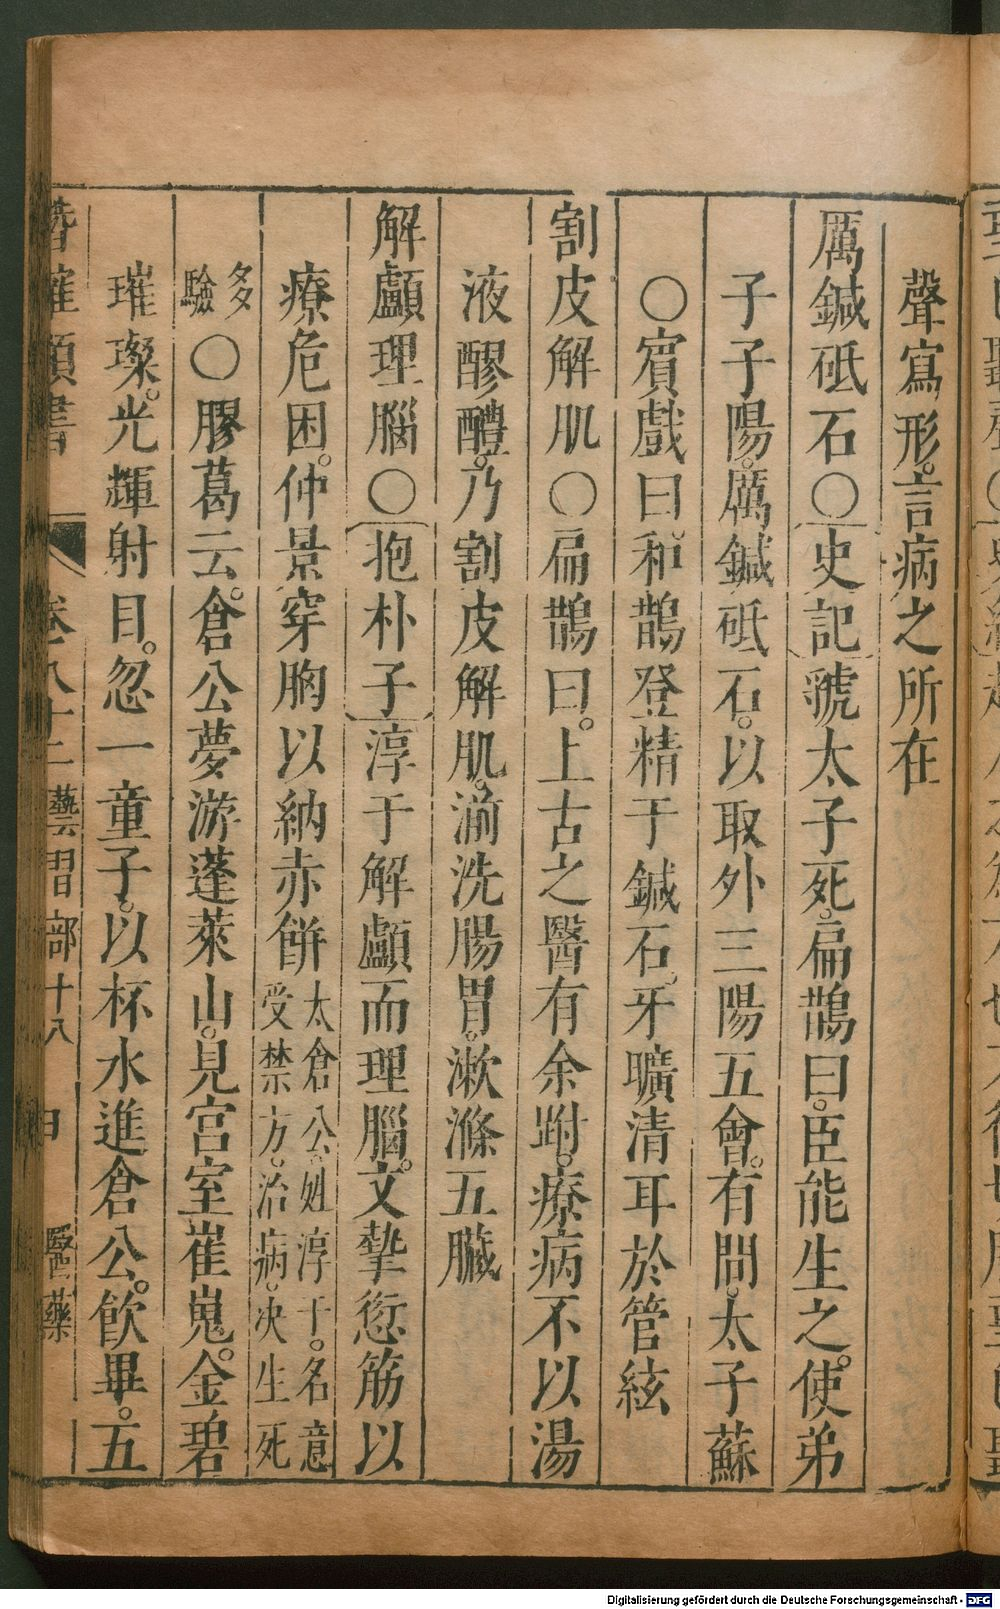 聲寫形。言病之所在
厲鍼砥石○史記虢太子死。扁鵲曰。臣能生之。使弟
子子陽。厲鍼砥石。以取外三陽五會。有間。太子蘇
○賓戲曰。和鵲登精于鍼石。牙曠清耳於管絃
割皮解肌○扁鵲曰。上古之醫有余跗。療病不以湯
液醪醴。乃割皮解肌。湔洗腸胃。漱滌五臟
解顱理腦○抱朴子淳于解顱而理腦。文摯愆筋以
療危困。仲景穿胸以納赤餅太倉公。姓淳于。名意
受禁方。治病。決生死
多
驗○膠葛云。倉公夢游蓬萊山。見宮室崔嵬。金碧
璀璨。光輝射目。忽一童子。以杯水進倉公。飲畢。五
潛確類書 卷八十二 藝習部十八 醫藥
Digitalisierung gefördert durch die Deutsche Forschungsgemeinschaft - DFG